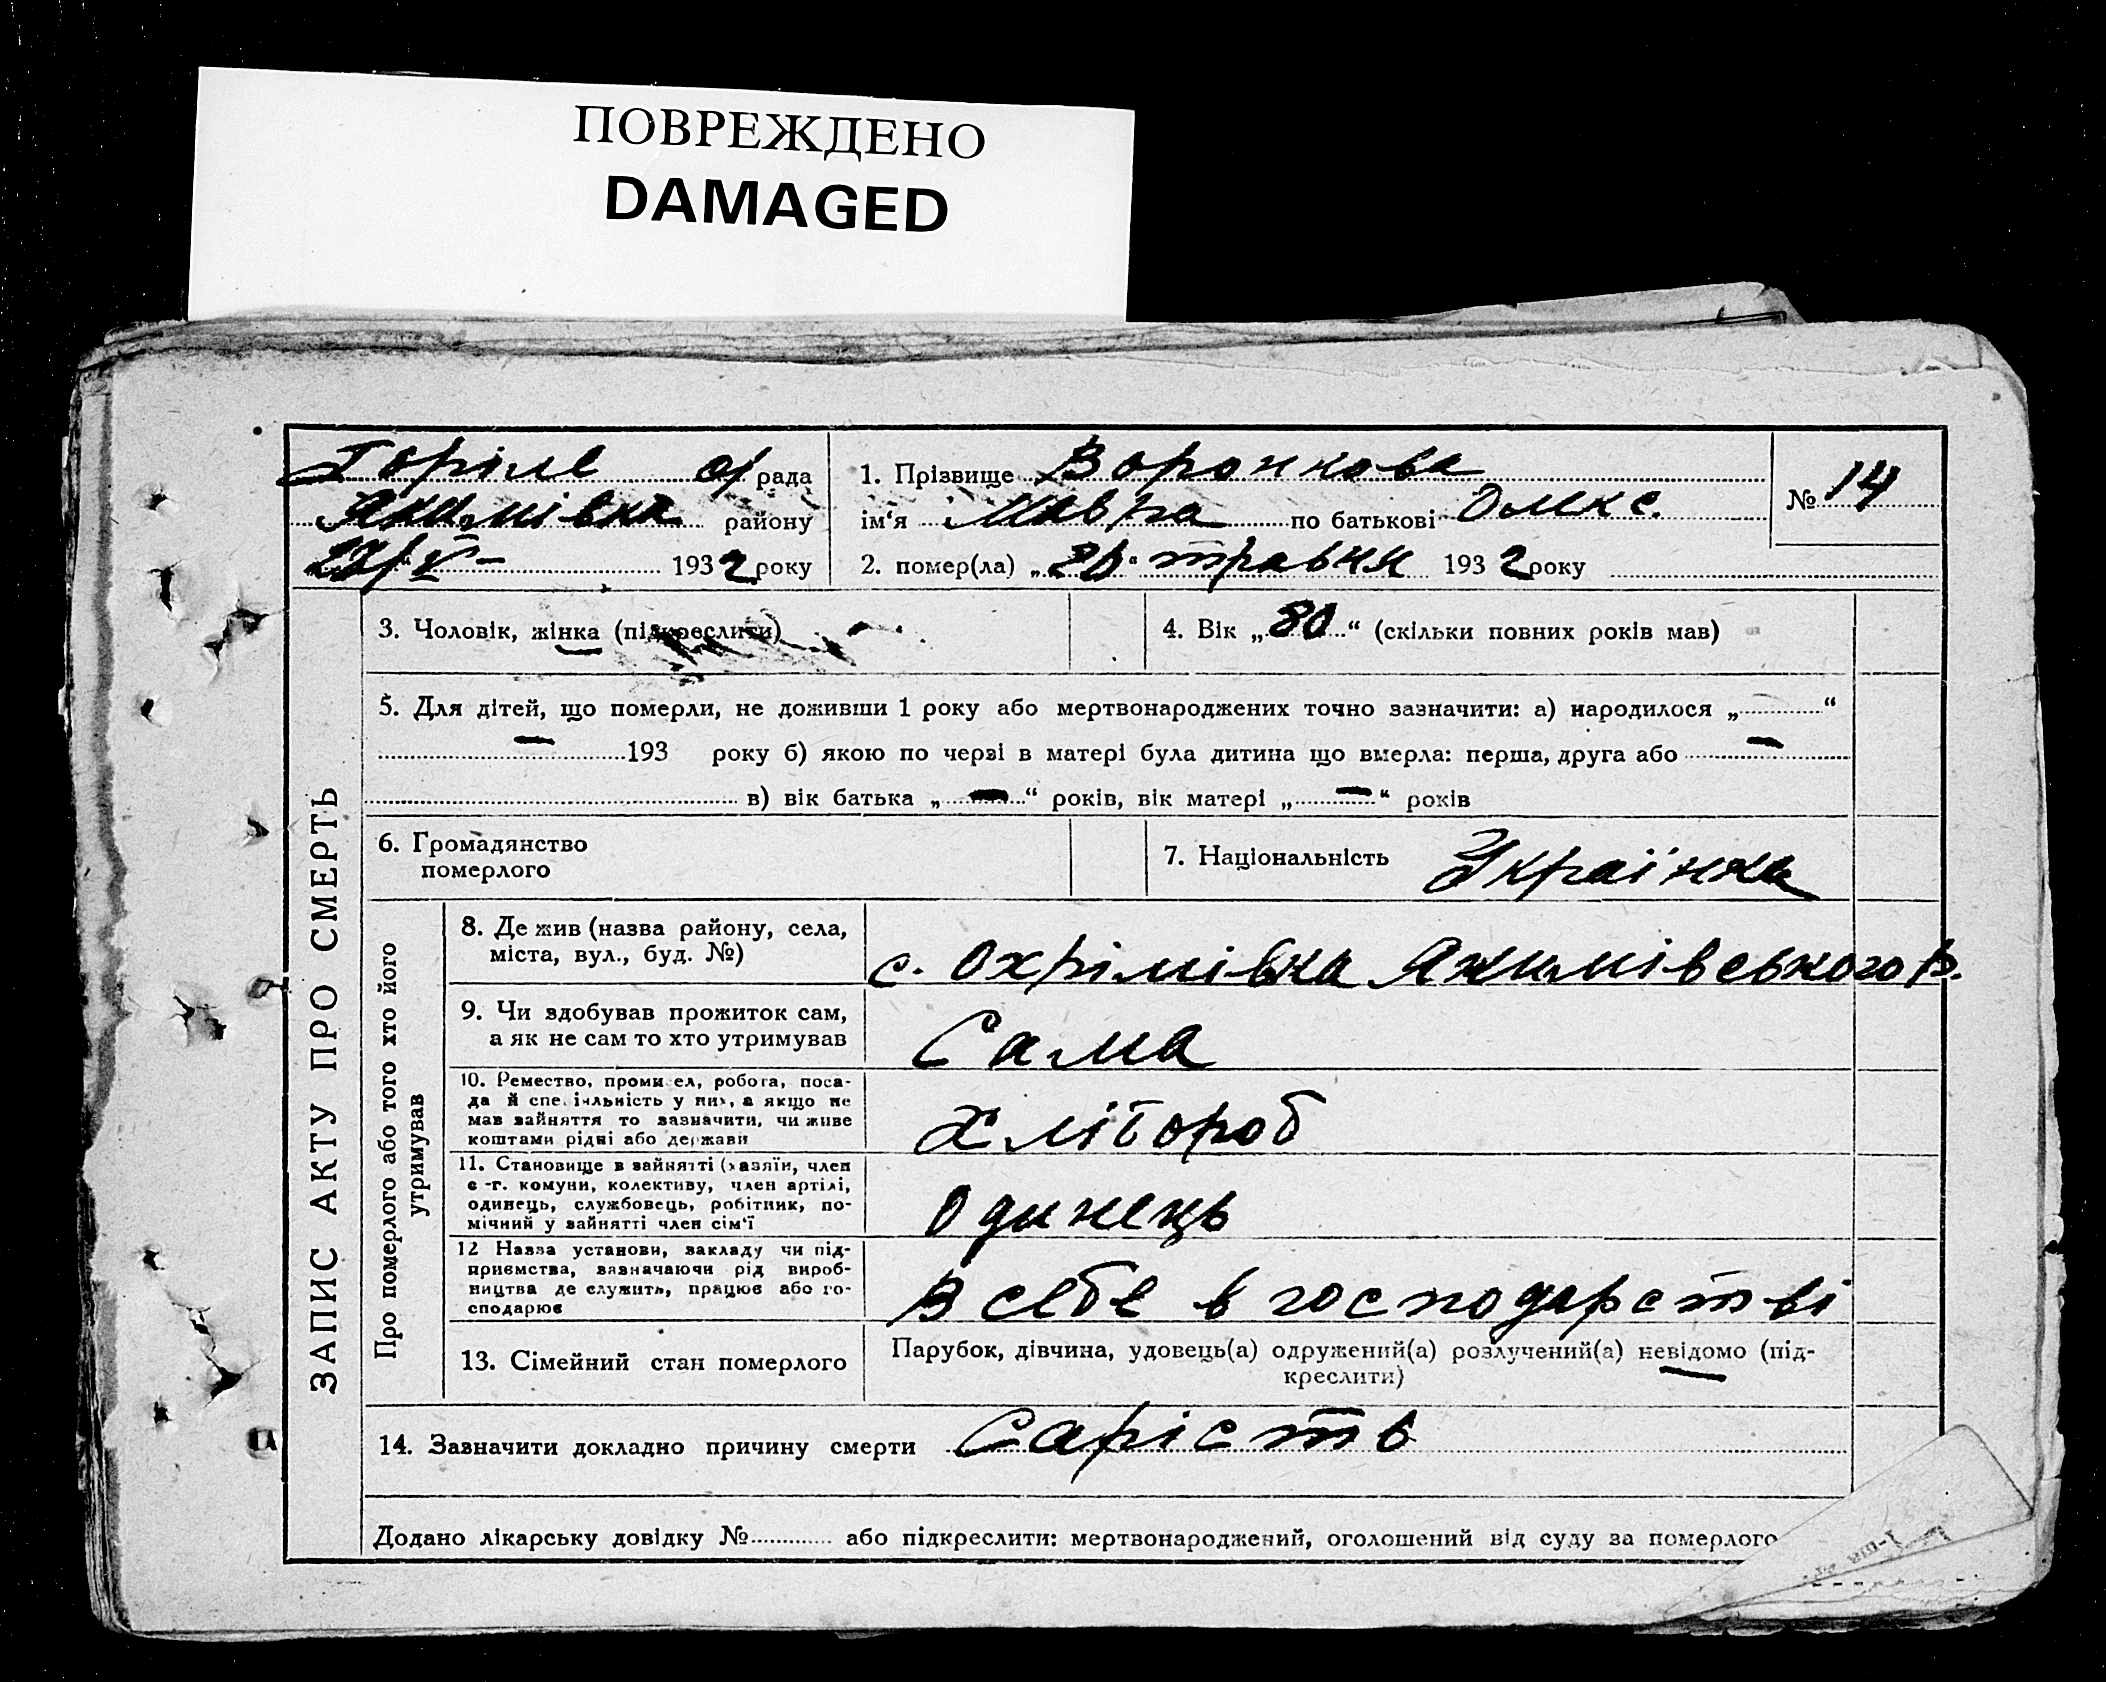 ПОВРЕЖДЕНО
DAMAGED
Горіле с/рада
Якимівка району
27/V- 1932 року
1. Прізвище Воронкова
ім‘я Мавра по батькові Омкс.
2. помер(ла) „20“ травня 1932 року
№ 14
ЗАПИС АКТУ ПРО СМЕРТЬ
3. Чоловік, жінка (підкреслити)
4. Вік „80“ (скільки повних років мав)
5. Для дітей, що померли, не доживши 1 року або мертвонароджених точно зазначити: а) народилося „ “
— 193 року б) якою по черзі в матері була дитина що вмерла: перша, друга або —
в) вік батька „—“ років, вік матері „—“ років
6. Громадянство
померлого
7. Національність Українка
Про померлого або того хто його
утримував
8. Де жив (назва району, села,
міста, вул., буд. №)
с. Охрімівка Якимівського р.
9. Чи здобував прожиток сам,
а як не сам то хто утримував
Сама
10. Ремество, промисел, робота, поса-
да й спеціяльність у них, а якщо не
мав зайняття то зазначити, чи живе
коштами рідні або держави
Хлібороб
11. Становище в зайнятті (хазяїн, член
с.-г. комуни, колективу, член артілі,
одинець, службовець, робітник, по-
мічний у зайнятті член сім‘ї
Одинець
12 Назва установи, закладу чи під-
приємства, зазначаючи рід вироб-
ництва де служить, працює або го-
сподарює
В себе в господарстві
13. Сімейний стан померлого
Парубок, дівчина, удовець(а) одружений(а) розлучений(а) невідомо (під-
креслити)
14. Зазначити докладно причину смерти Сарість
Додано лікарську довідку № або підкреслити: мертвонароджений, оголошений від суду за померлого